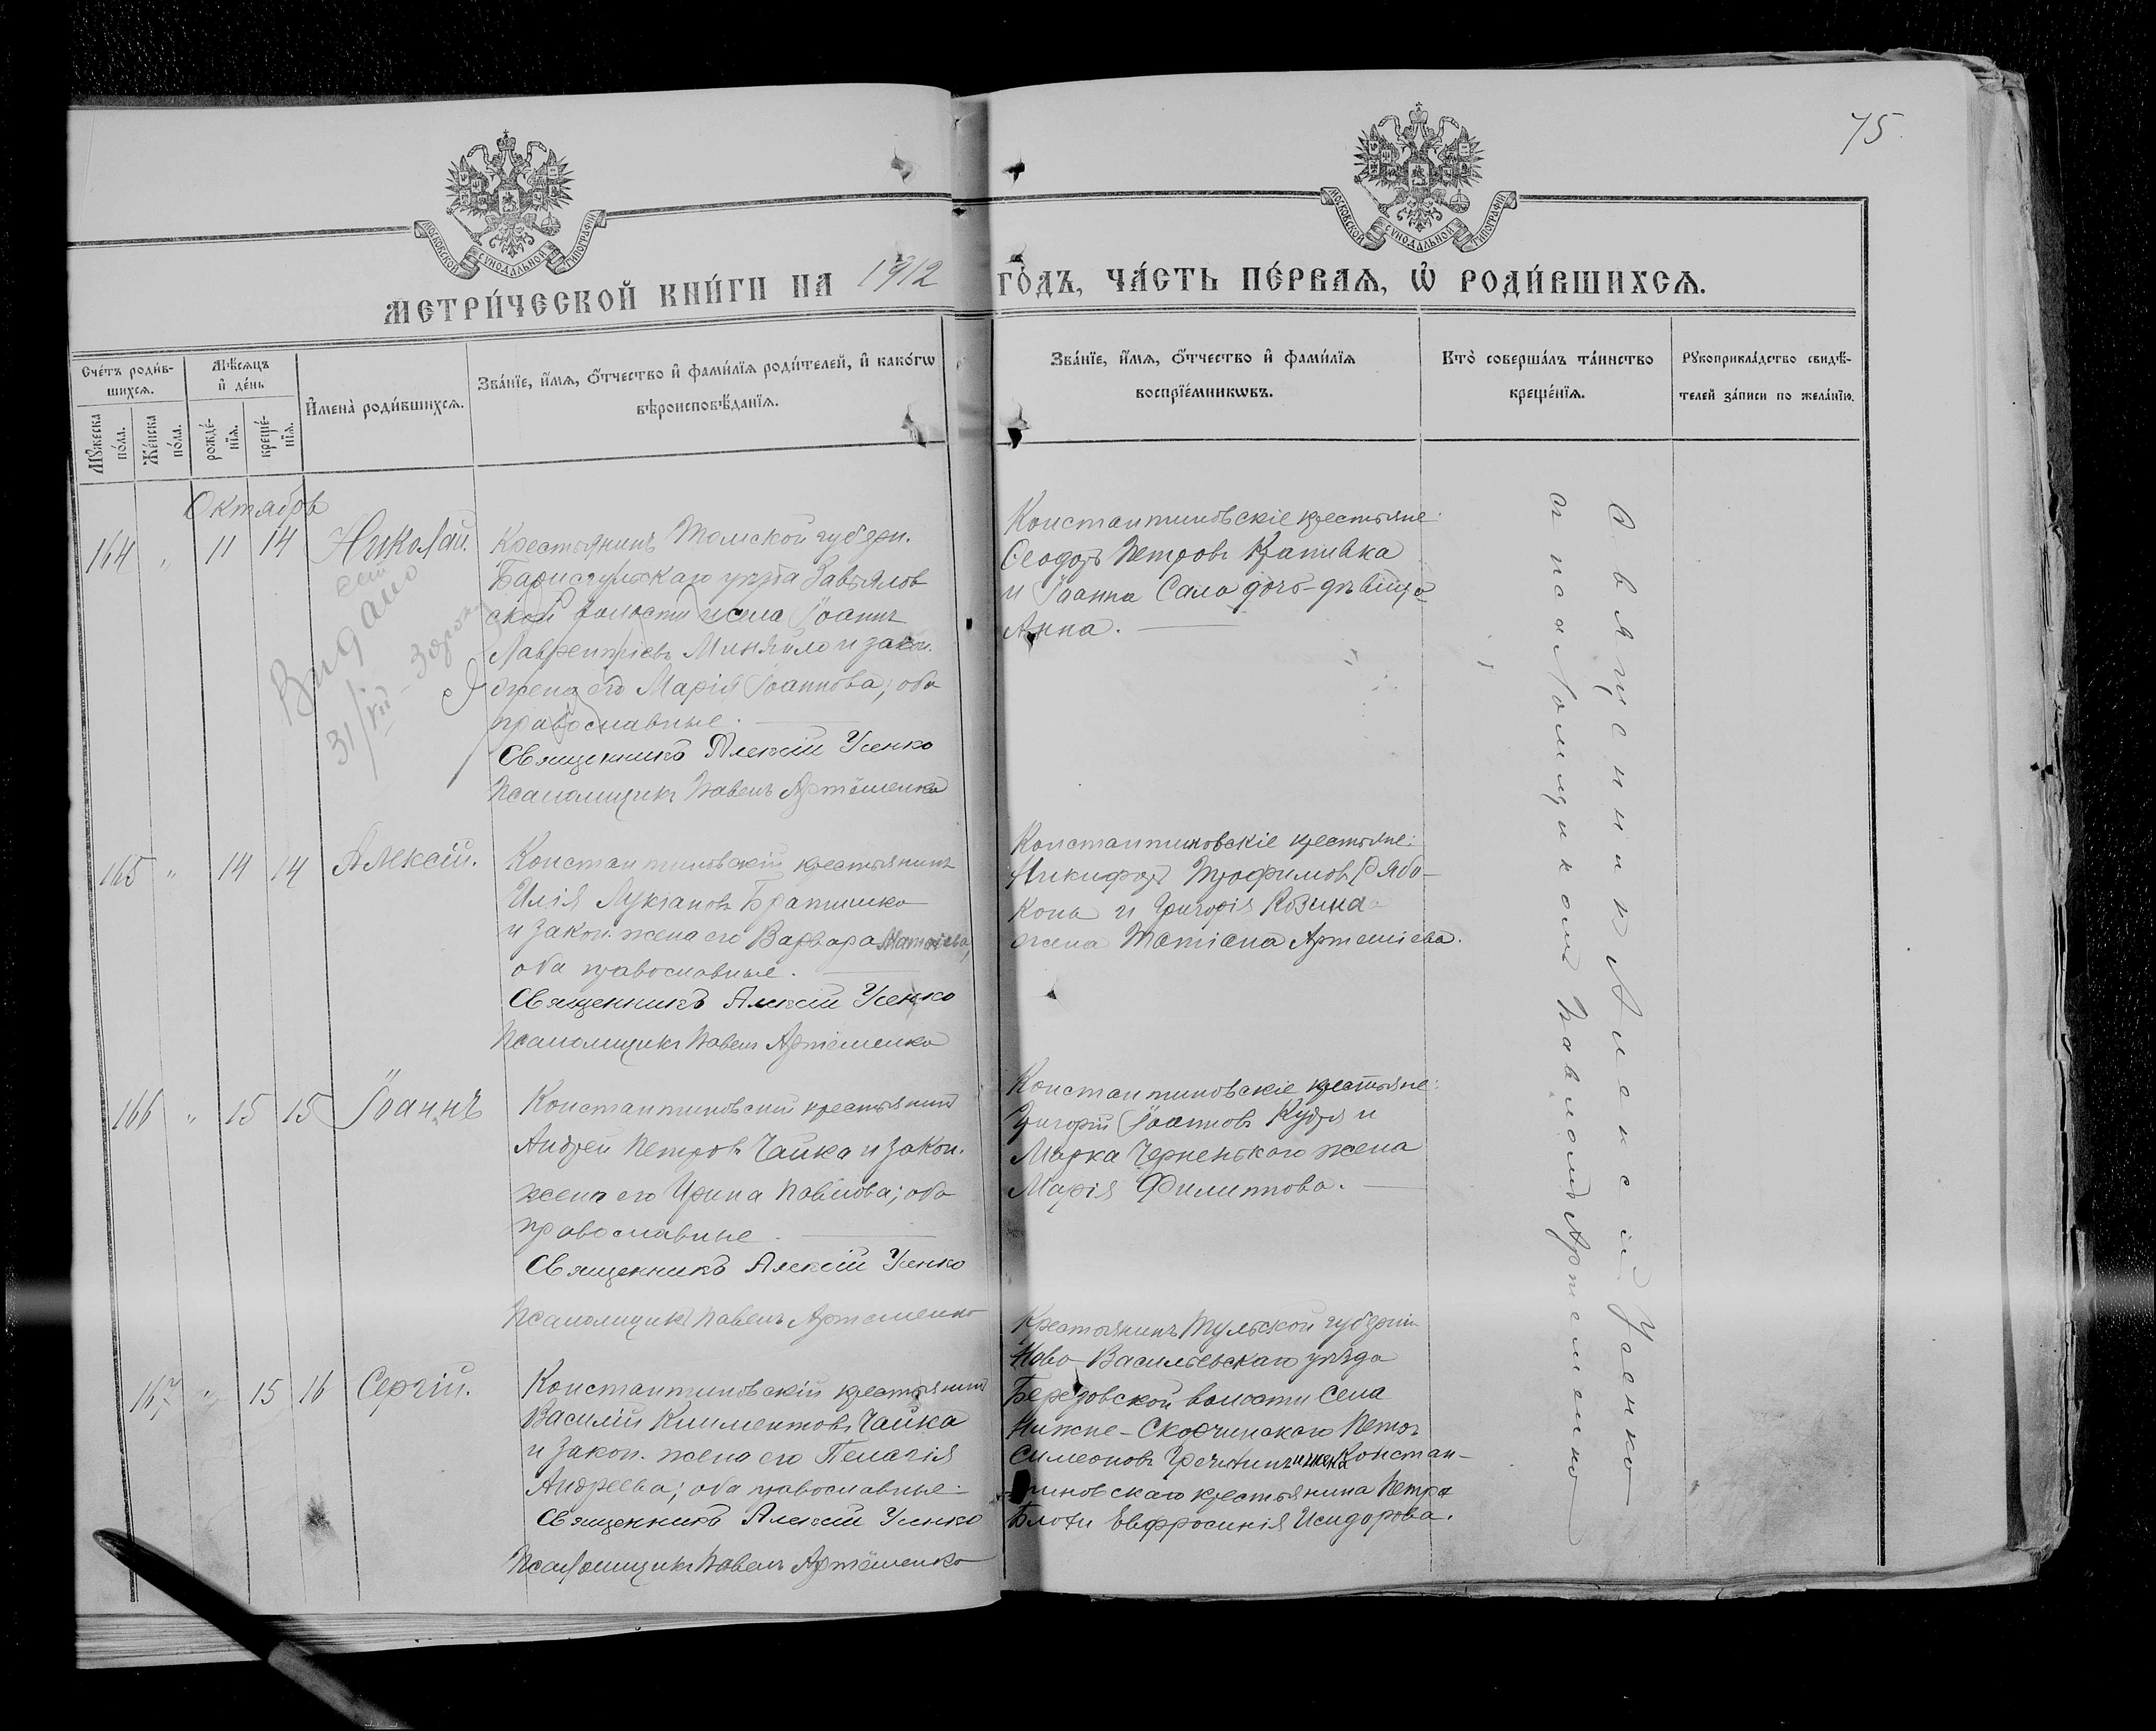 75
МОСКОВСКОЙ СѴНОДАЛЬНОЙ ТИПОГРАФІИ
МОСКОВСКОЙ СѴНОДАЛЬНОЙ ТИПОГРАФІИ
МЕТРИ́ЧЕСКОЙ КНИ́ГИ НА 1912 ГО́ДЪ, ЧА́СТЬ ПЕ́РВАѦ, Ѡ҆ РОДИ́ВШИХСѦ.
Сче́тъ роди́в-
шихсѧ.
Мꙋ́жеска по́ла.
Же́нска по́ла.
Мѣ́сѧцъ и҆ де́нь
рожде́-
нїѧ.
креще́-
нїѧ.
И҆мена̀ роди́вшихсѧ.
Зва́нїе, и҆́мѧ, ѻ҆́тчество и҆ фами́лїѧ роди́телей, и҆ како́гѡ
вѣроисповѣ́данїѧ.
Зва́нїе, и҆́мѧ, ѻ҆́тчество и҆ фами́лїѧ
воспрїе́мникѡвъ.
Кто̀ соверша́лъ та́инство
креще́нїѧ.
Рꙋкоприкла́дство свидѣ́-
телей за́писи по жела́нїю.
Октябрь
164 " 11 14 Николай.
Крестьянинъ Томской губерн.
Барнаульскаго уѣзда Завьялов
ской волости и села Іоаннъ
Лаврентіевъ Миняйло и закон.
жена его Марія Іоаннова; оба
православные.
Священникъ Алексій Усенко
Псаломщикъ Павелъ Артеменко
Видано
31/VII
Константиновскіе крестьяне:
Ѳеодоръ Петровъ Капивка
и Іоанна Сало дочь-дѣвица
Анна.
165 " 14 14 Алексій.
Константиновскій крестьянинъ
Илія Лукіановъ Братишко
и закон. жена его Варвара Матѳіева,
оба православные.
Священникъ Алексій Усенко
Псаломщикъ Павелъ Артеменко
Константиновскіе крестьяне:
Никифоръ Трофимовъ Рябо-
конь и Григорія Козина
жена Татіана Артеміева.
166 " 15 15 Іоаннъ
Константиновскій крестьянинъ
Андрей Петровъ Чайка и закон.
жена его Ирина Павлова; оба
православные.
Священникъ Алексій Усенко
Псаломщикъ Павелъ Артеменко
Константиновскіе крестьяне:
Григорій Іоанновъ Кудря и
Марка Черненького жена
Марія Филиппова.
167 " 15 16 Сергій.
Константиновскій крестьянинъ
Василій Климентовъ Чайка
и закон. жена его Пелагія
Андреева; оба православные.
Священникъ Алексій Усенко
Псаломщикъ Павелъ Артеменко
Крестьянинъ Тульской губерніи
Ново-Васильевскаго уѣзда
волости села
Петръ
Симеоновъ и жена Констан-
тиновскаго крестьянина Петра
Евфросинія Исидорова.
Священникъ Алексій Усенко
съ псаломщикомъ Павломъ Артеменко